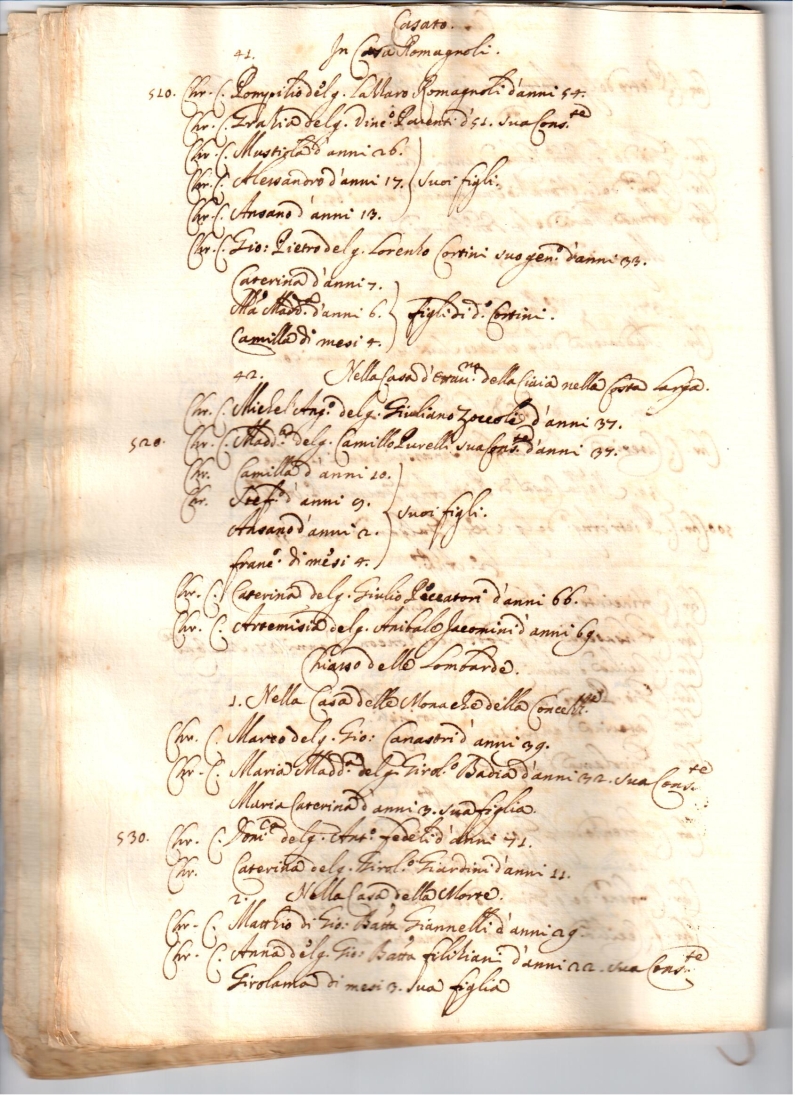 Casato.
41. In Casa Romagnoli.
510. Chr. C. Pompilio del q. Lattaro Romagnoli d'anni 54.
Chr. C. Grazia del q. Vinc.o Parenti d'51. sua Cons.te
Chr. C. Mustiola d'anni 26.
Chr. C. Alessandro d'anni 17. suoi figli.
Chr. C. Ansano d'anni 13.
Chr. C. Gio: Pietro del q. Lorenzo Cortini suo gen.o d'anni 33.
Caterina d'anni 7.
M.a Madd.a d'anni 6. figli di d.o Cortini.
Camilla di mesi 4.
42. Nella Casa d' della Ciaia nella Costa Larga.
Chr. C. Michel Ang.o del q. Giuliano Zoccoli d'anni 37.
520. Chr. C. Madd.a del q. Camillo Purelli sua Cons.te d'anni 37.
Chr. Camilla d'anni 10.
Chr. Stef.o d'anni 9. suoi figli.
Ansano d'anni 2.
Franc.o di mesi 4.
Chr. C. Caterina del q. Giulio Peccatori d'anni 66.
Chr. C. Artemisia del q. Anibale Jacomini d'anni 69.
Chiasso delle Lombarde.
1. Nella Casa delle Monache della Concett.ne
Chr. C. Marco del q. Gio: Canastri d'anni 39.
Chr. C. Maria Madd.a del q. Girol.o Badia d'anni 32. sua Cons.te
Maria Caterina d'anni 3. sua figlia
530. Chr. C. Dom.ca del q. Ant.o Fedeli d'anni 41.
Chr. Caterina del q. Girol.o Giardini d'anni 11.
2. Nella Casa della Morte.
Chr. C. Mattio di Gio: Batta Giannelli d'anni 29
Chr. C. Anna del q. Gio: Batta Filiziani d'anni 22. sua Cons.te
Girolama di mesi 3. sua figlia